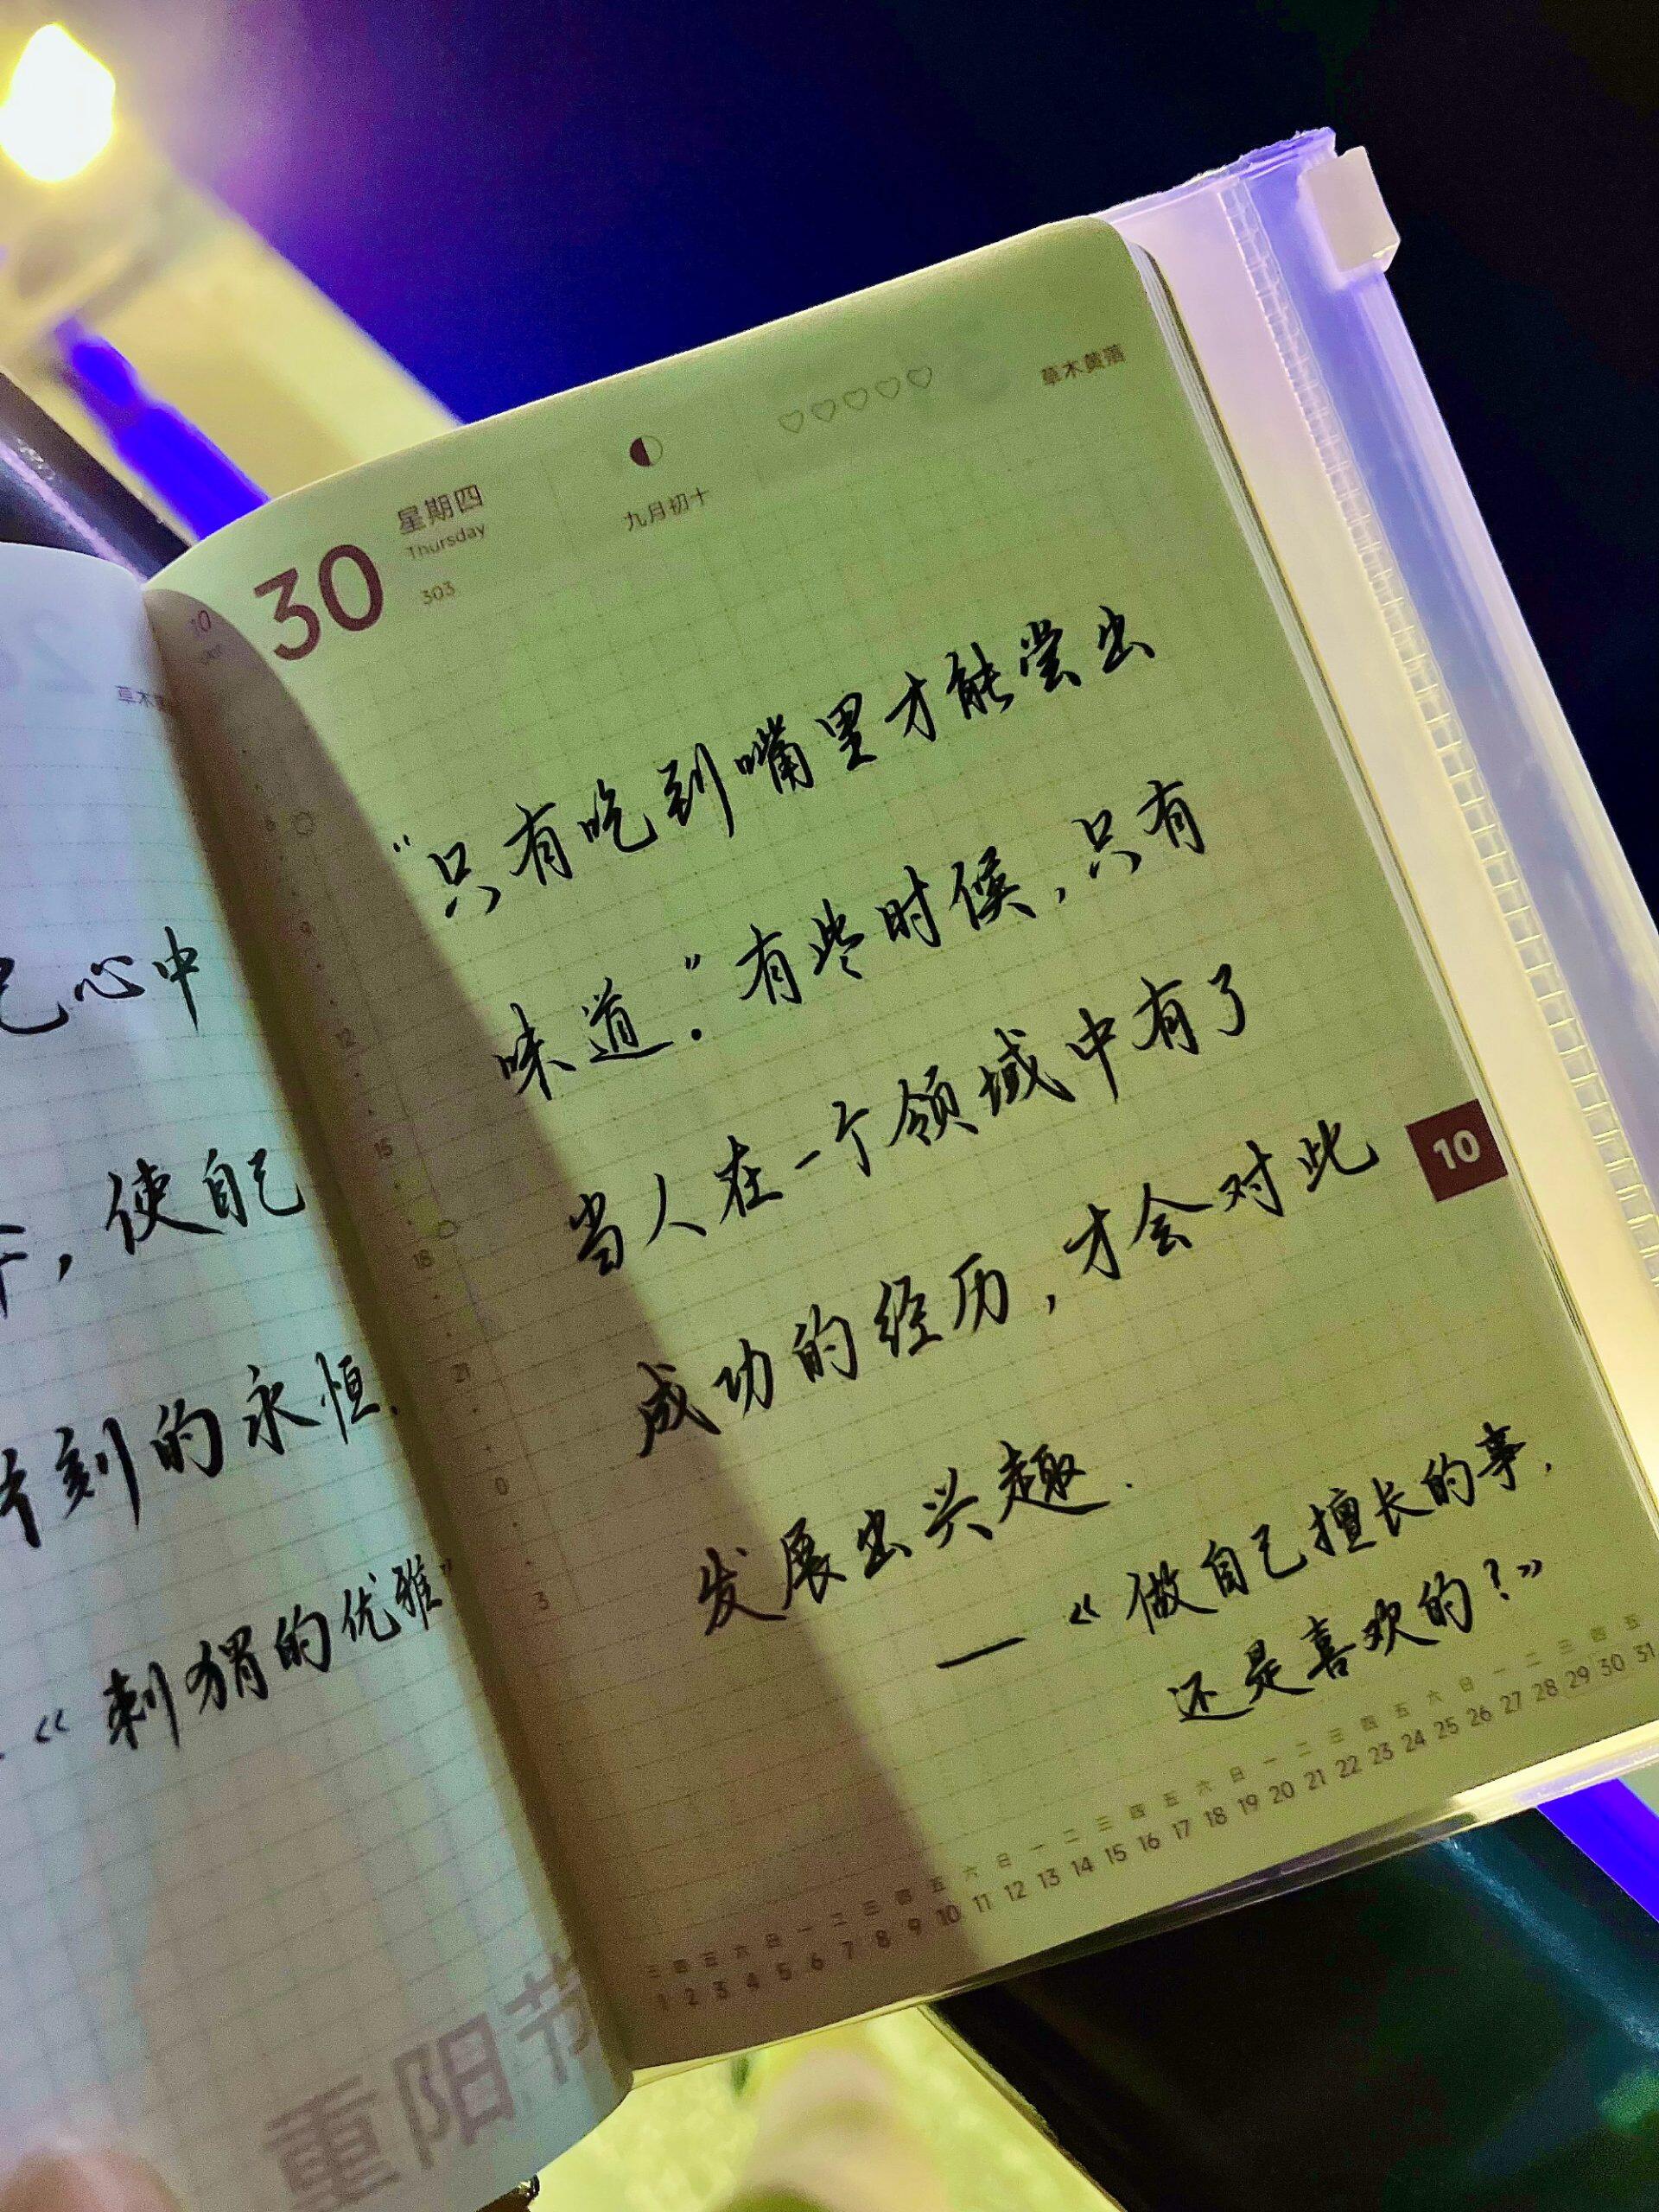 己心中
，使自己
片刻的永恒.
《刺猬的优雅》
重阳节
草木
10
30
星期四
Thursday
303
九月初十
♡♡♡♡♡
草木黄落
“只有吃到嘴里才能尝出
味道.”有些时候,只有
当人在一个领域中有了
成功的经历,才会对此
发展出兴趣.
—《做自己擅长的事,
还是喜欢的?》
10
6
9
12
15
18
21
0
3
三 四 五 六 日 一 二 三 四 五 六 日 一 二 三 四 五 六 日 一 二 三 四 五 六 日 一 二 三 四 五
1 2 3 4 5 6 7 8 9 10 11 12 13 14 15 16 17 18 19 20 21 22 23 24 25 26 27 28 29 30 31